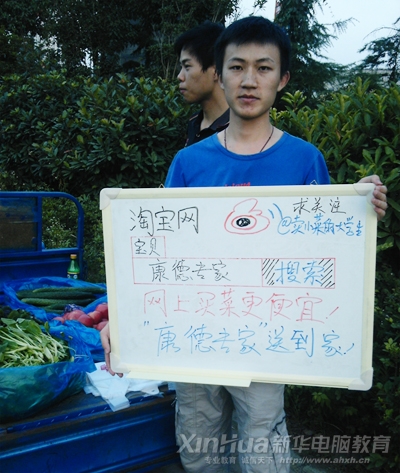 淘宝网
求关注
@卖小菜的大学生
宝贝
康德专家
搜索
网上买菜更便宜!
"康德专家"送到家!
XinHua新华电脑教育
专业教育 诚信天下 http://www.ahxh.cn